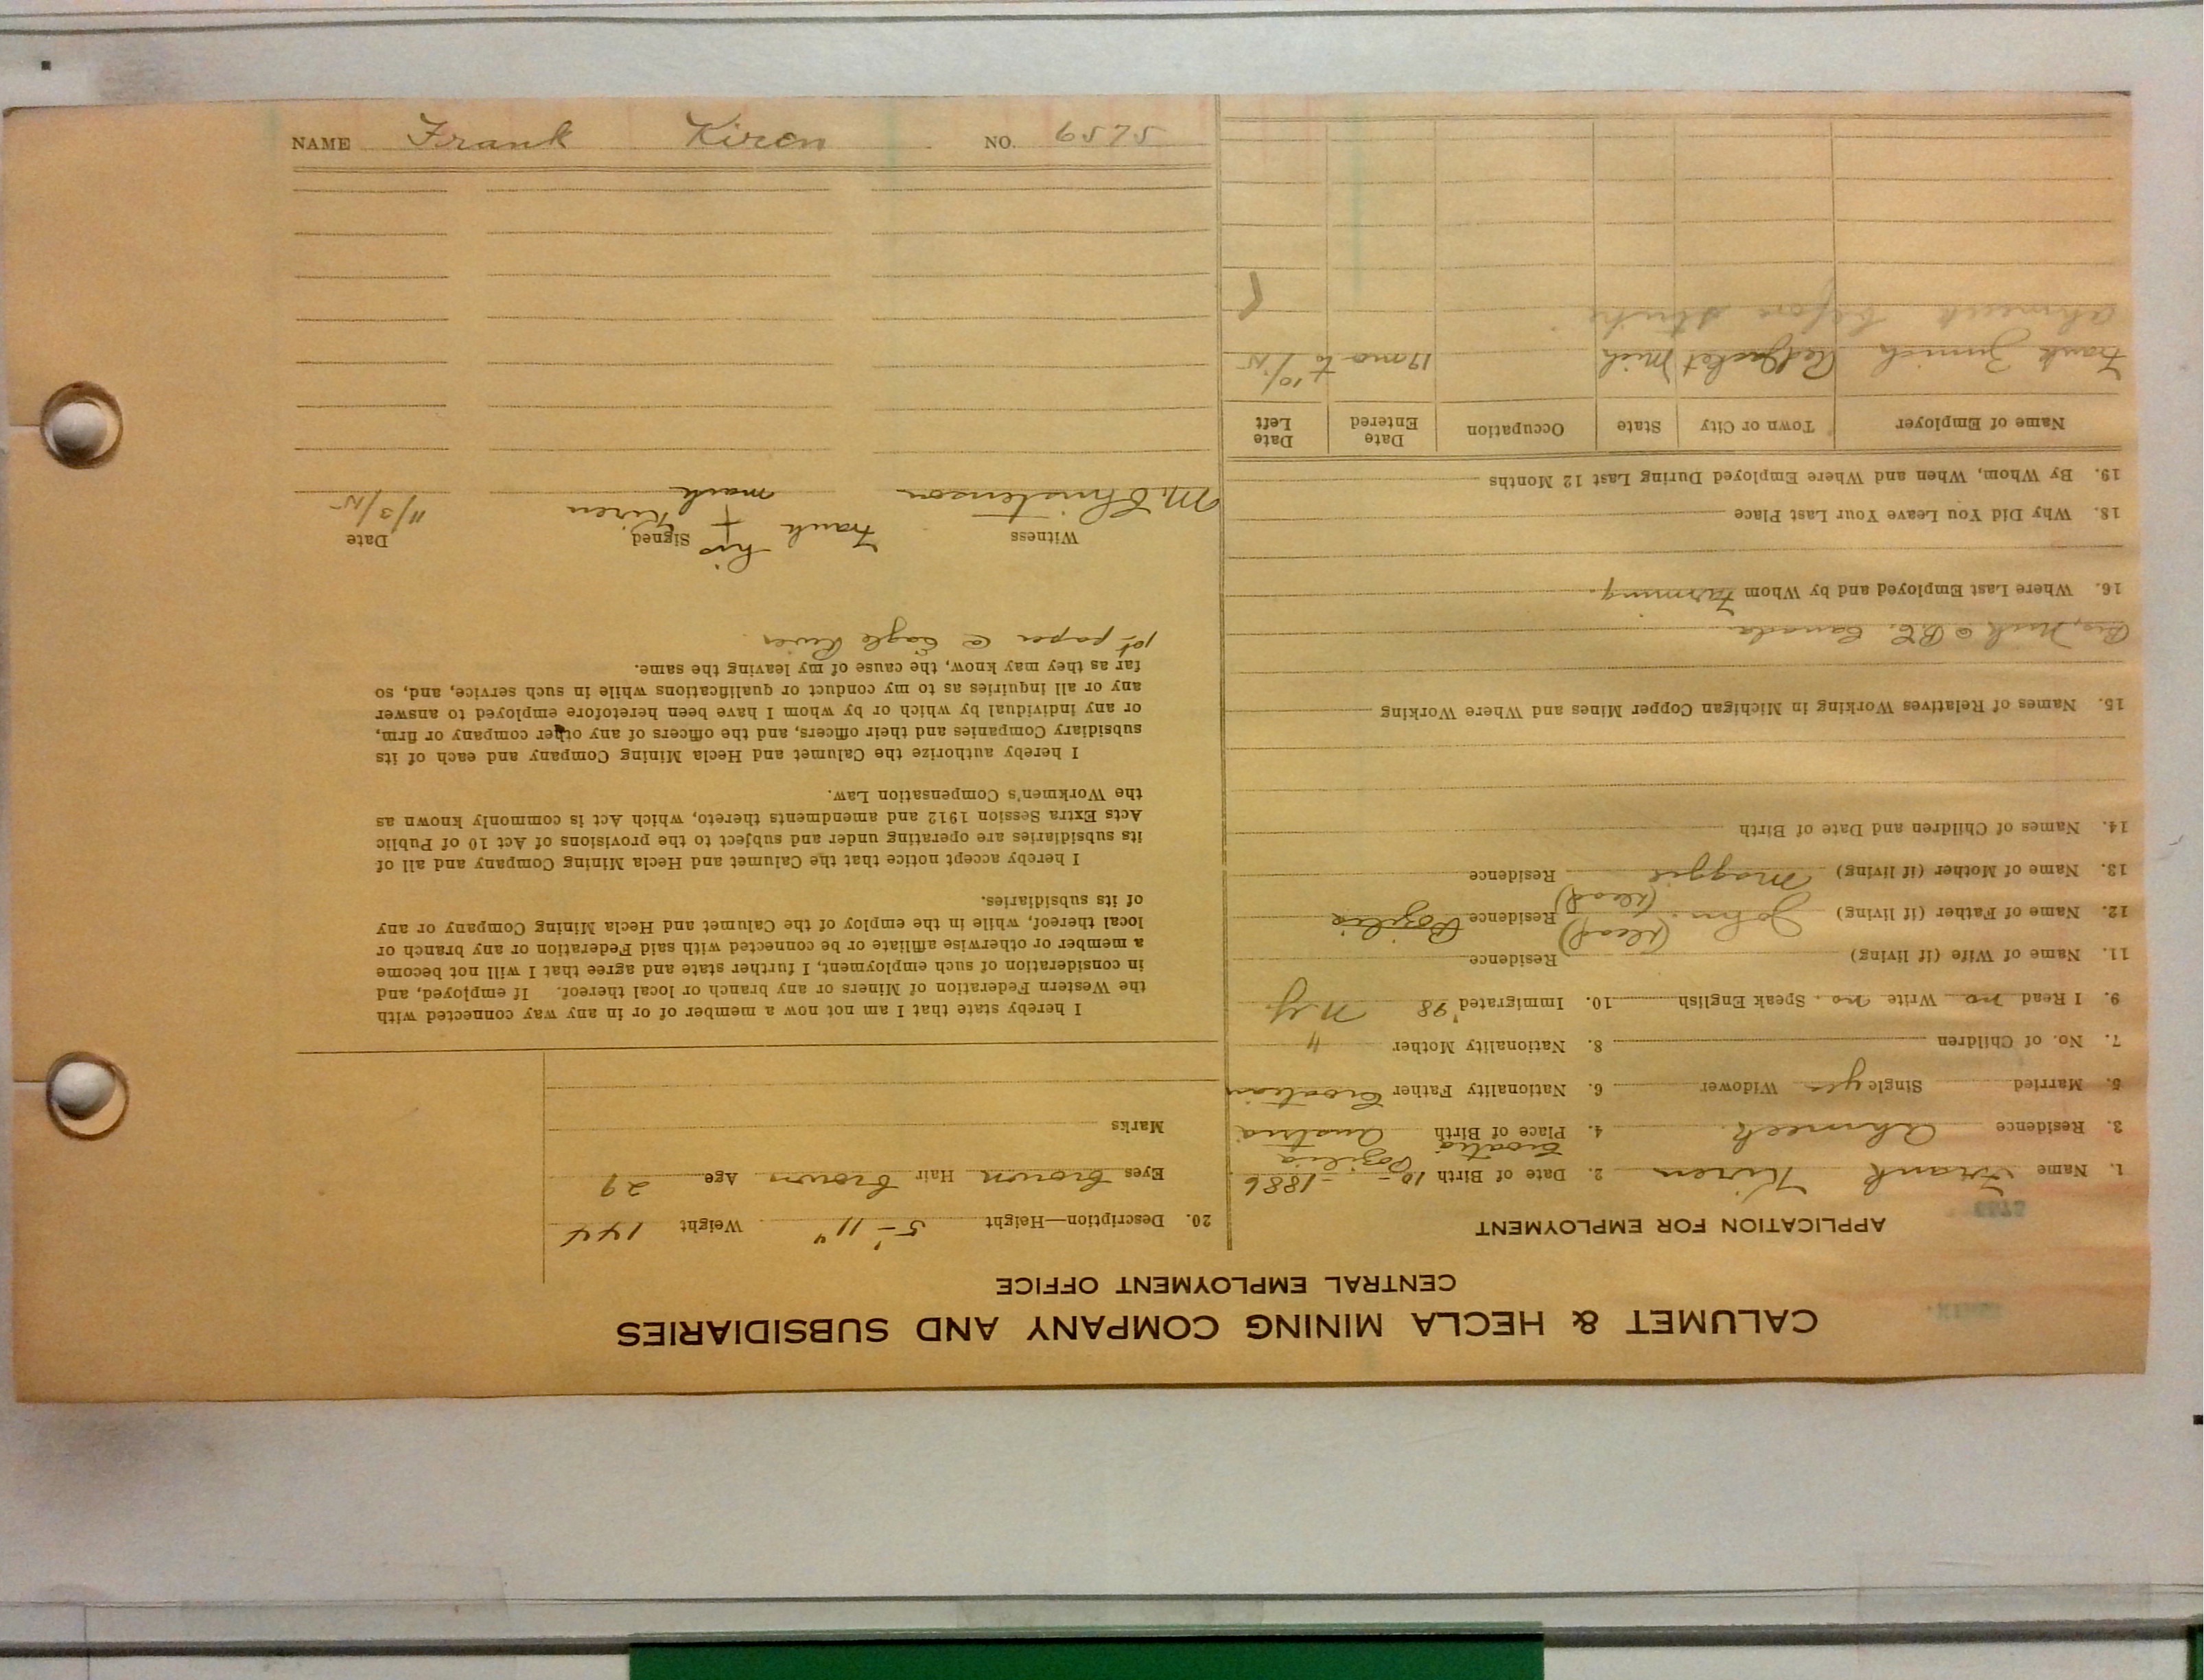 NAME Frank Kiren NO. 6575
CALUMET & HECLA MINING COMPANY AND SUBSIDIARIES
CENTRAL EMPLOYMENT OFFICE
APPLICATION FOR EMPLOYMENT
1. Name Frank Kiren 2. Date of Birth 10 - - 1886
Croatia
3. Residence Ahmeek 4. Place of Birth Austria
5. Married Single yes Widower 6. Nationality Father Croatian
7. No. of Children 8. Nationality Mother "
9. I Read no Write no Speak English 10. Immigrated '98 N Y
11. Name of Wife (if living) Residence
12. Name of Father (if living) John (dead) Residence
13. Name of Mother (if living) Maggie (dead) Residence
14. Names of Children and Date of Birth
15. Names of Relatives Working in Michigan Copper Mines and Where Working
Bro, Nick @ B.C. Canada
16. Where Last Employed and by Whom Farming.
18. Why Did You Leave Your Last Place
19. By Whom, When and Where Employed During Last 12 Months
Name of Employer Town or City State Occupation Date Entered Date Left
Frank Red Jacket Mich 19 mo to 10/15
Ahmeek before strike
20. Description—Height 5' - 11" Weight 144
Eyes brown Hair brown Age 29
Marks
I hereby state that I am not now a member of or in any way connected with
the Western Federation of Miners or any branch or local thereof. If employed, and
in consideration of such employment, I further state and agree that I will not become
a member or otherwise affiliate or be connected with said Federation or any branch or
local thereof, while in the employ of the Calumet and Hecla Mining Company or any
of its subsidiaries.
I hereby accept notice that the Calumet and Hecla Mining Company and all of
its subsidiaries are operating under and subject to the provisions of Act 10 of Public
Acts Extra Session 1912 and amendments thereto, which Act is commonly known as
the Workmen's Compensation Law.
I hereby authorize the Calumet and Hecla Mining Company and each of its
subsidiary Companies and their officers, and the officers of any other company or firm,
or any individual by which or by whom I have been heretofore employed to answer
any or all inquiries as to my conduct or qualifications while in such service, and, so
far as they may know, the cause of my leaving the same.
1st paper @ Eagle River
Witness Signed Date
his
M. Christenson Frank + Kiren 11/3/15
mark